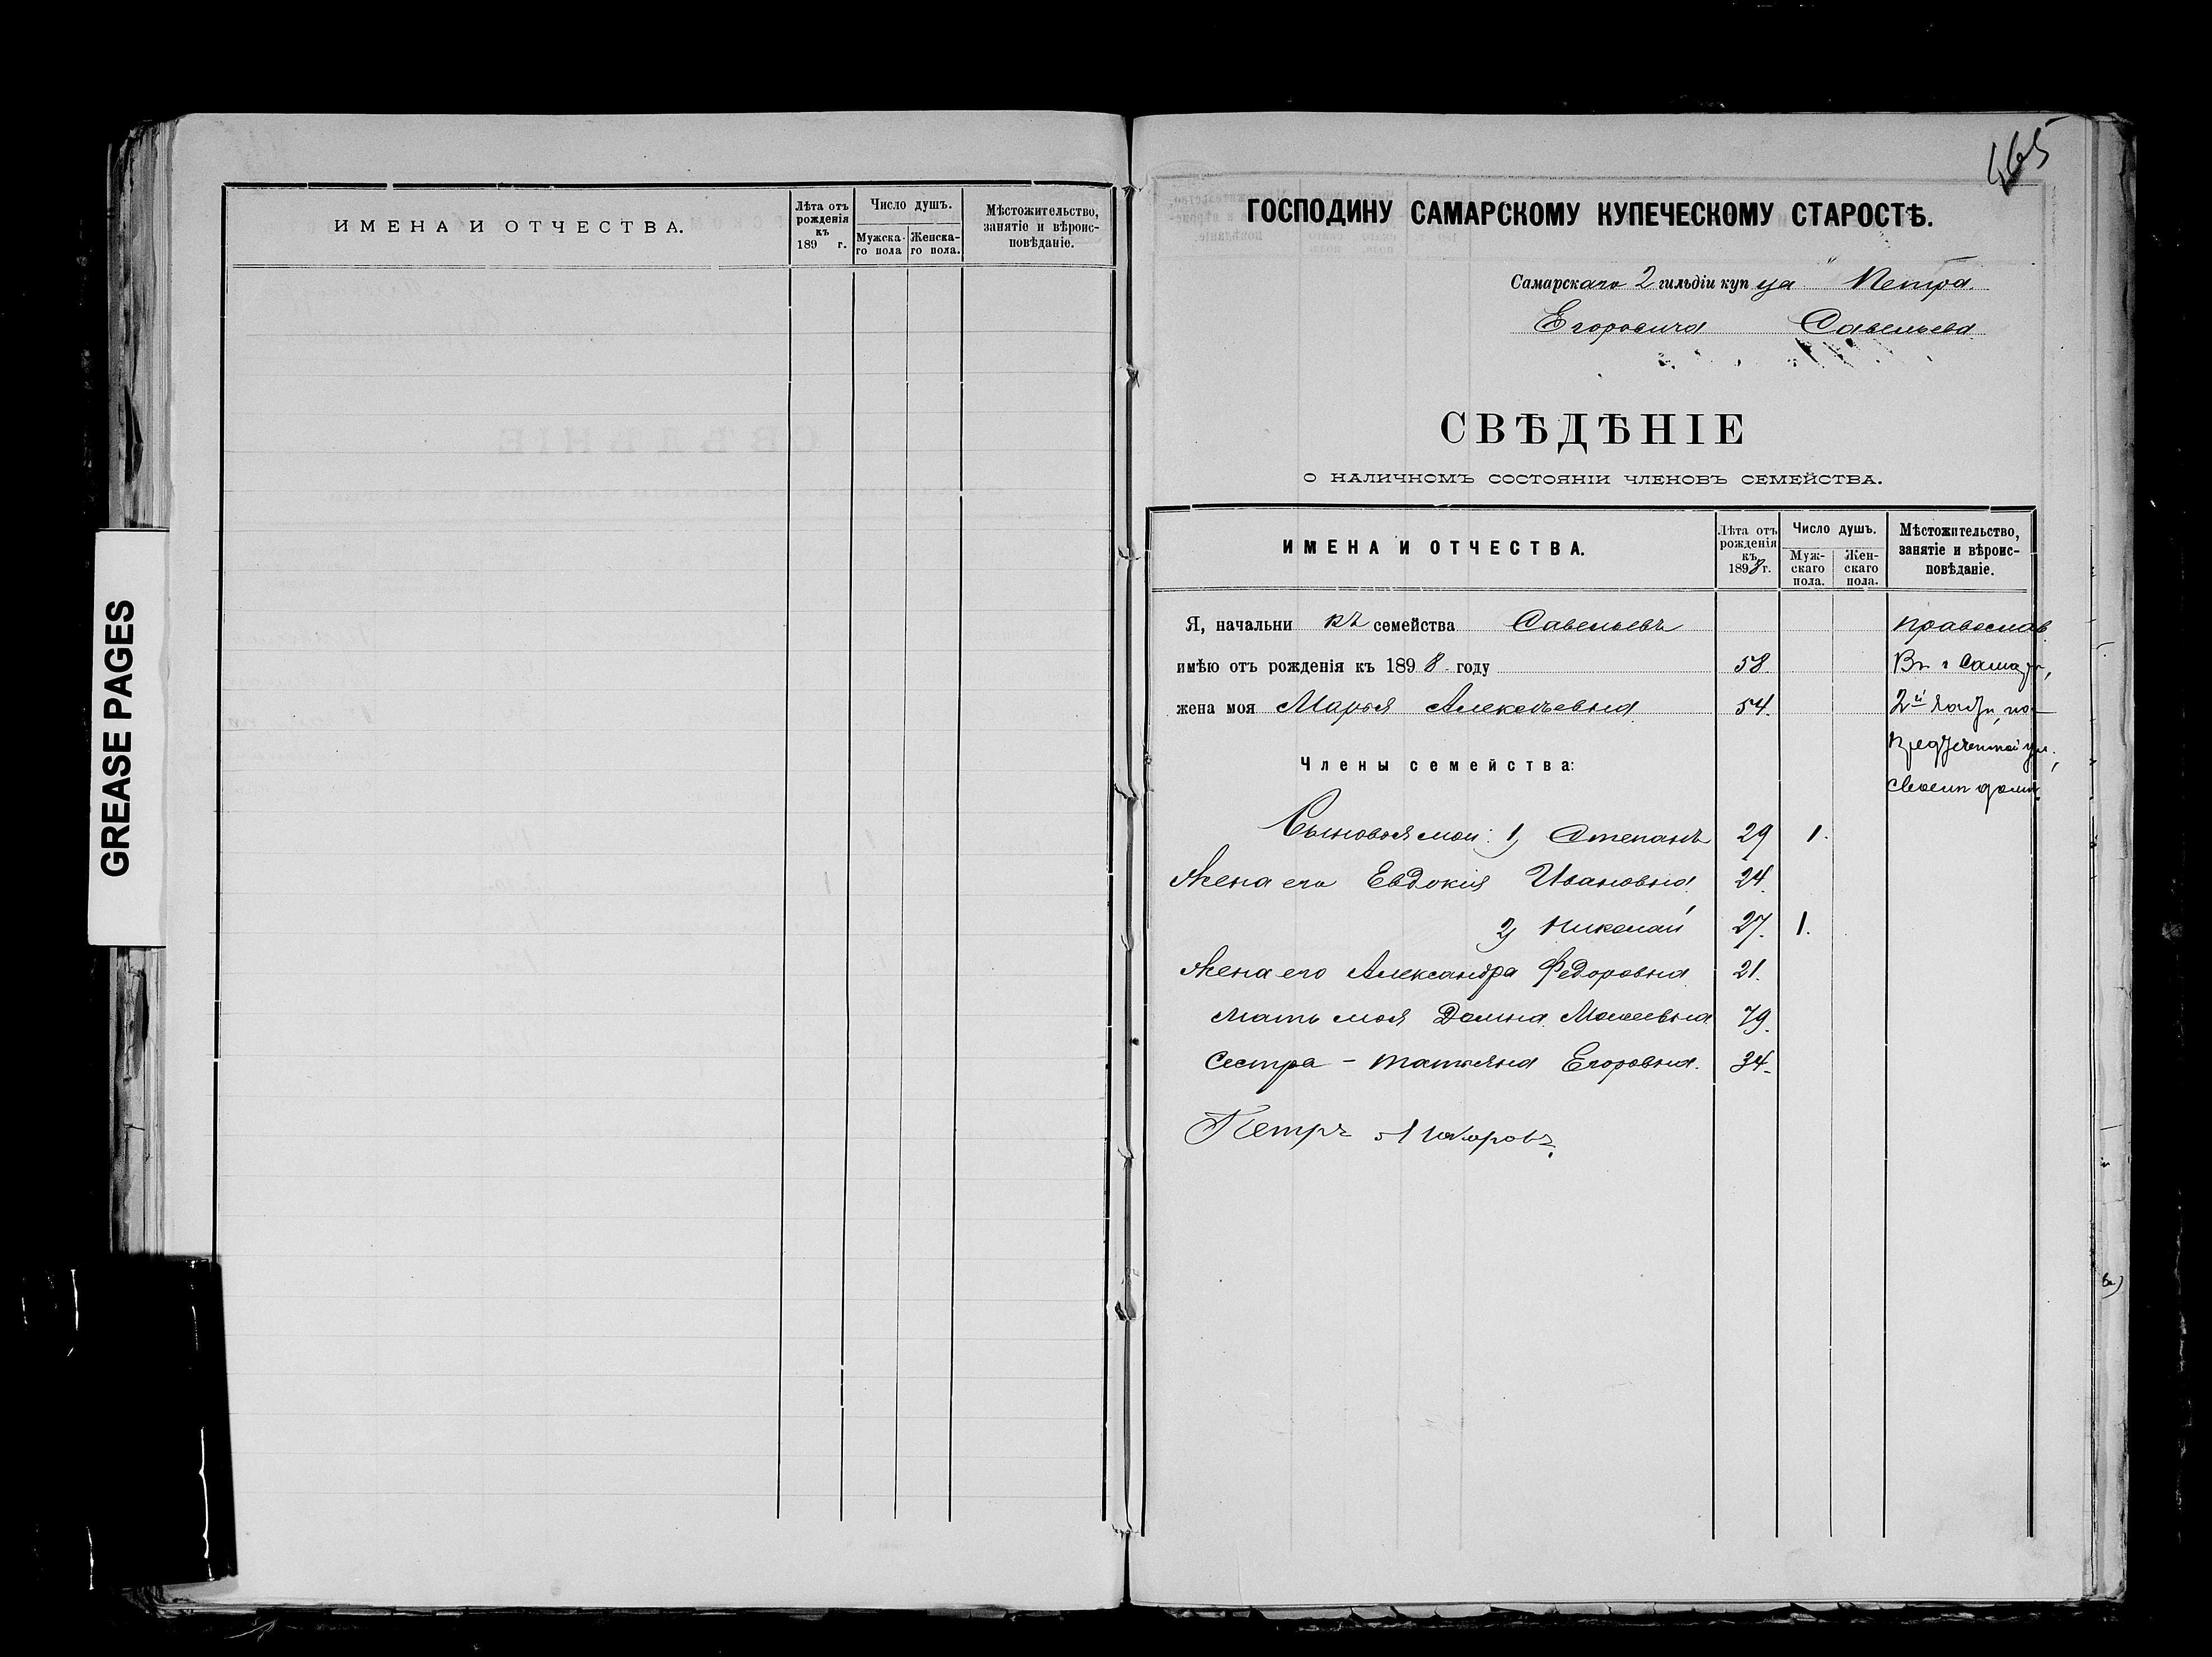 GREASE PAGES
ИМЕНА И ОТЧЕСТВА.
Лѣта отъ рожденія къ 189 г.
Число душъ.
Мужска-го пола
Женска-го пола.
Мѣстожительство, занятіе и вѣроис-повѣданіе.
465
ГОСПОДИНУ САМАРСКОМУ КУПЕЧЕСКОМУ СТАРОСТѢ.
Самарскаго 2 гильдіи купца Петра
Егоровича Савельева
СВѢДѢНІЕ
О НАЛИЧНОМЪ СОСТОЯНІИ ЧЛЕНОВЪ СЕМЕЙСТВА.
ИМЕНА И ОТЧЕСТВА.
Лѣта отъ рожденія къ 1898 г.
Число душъ.
Муж-скаго пола.
Жен-скаго пола.
Мѣстожительство, занятіе и вѣроис-повѣданіе.
Я, начальникъ семейства Савельевъ православ
имѣю отъ рожденія къ 1898 году 58. Въ г Самарѣ,
жена моя Марья Алексѣевна 54. 2й части, по
Члены семейства:
своемъ домѣ
Сыновья мои: 1) Степанъ 29 1.
Жена его Евдокия Ивановна 24.
2) Николай 27. 1.
Жена его Александра Федоровна 21.
Мать моя Домна 79.
Сестра - Татьяна Егоровна. 34.
Петръ